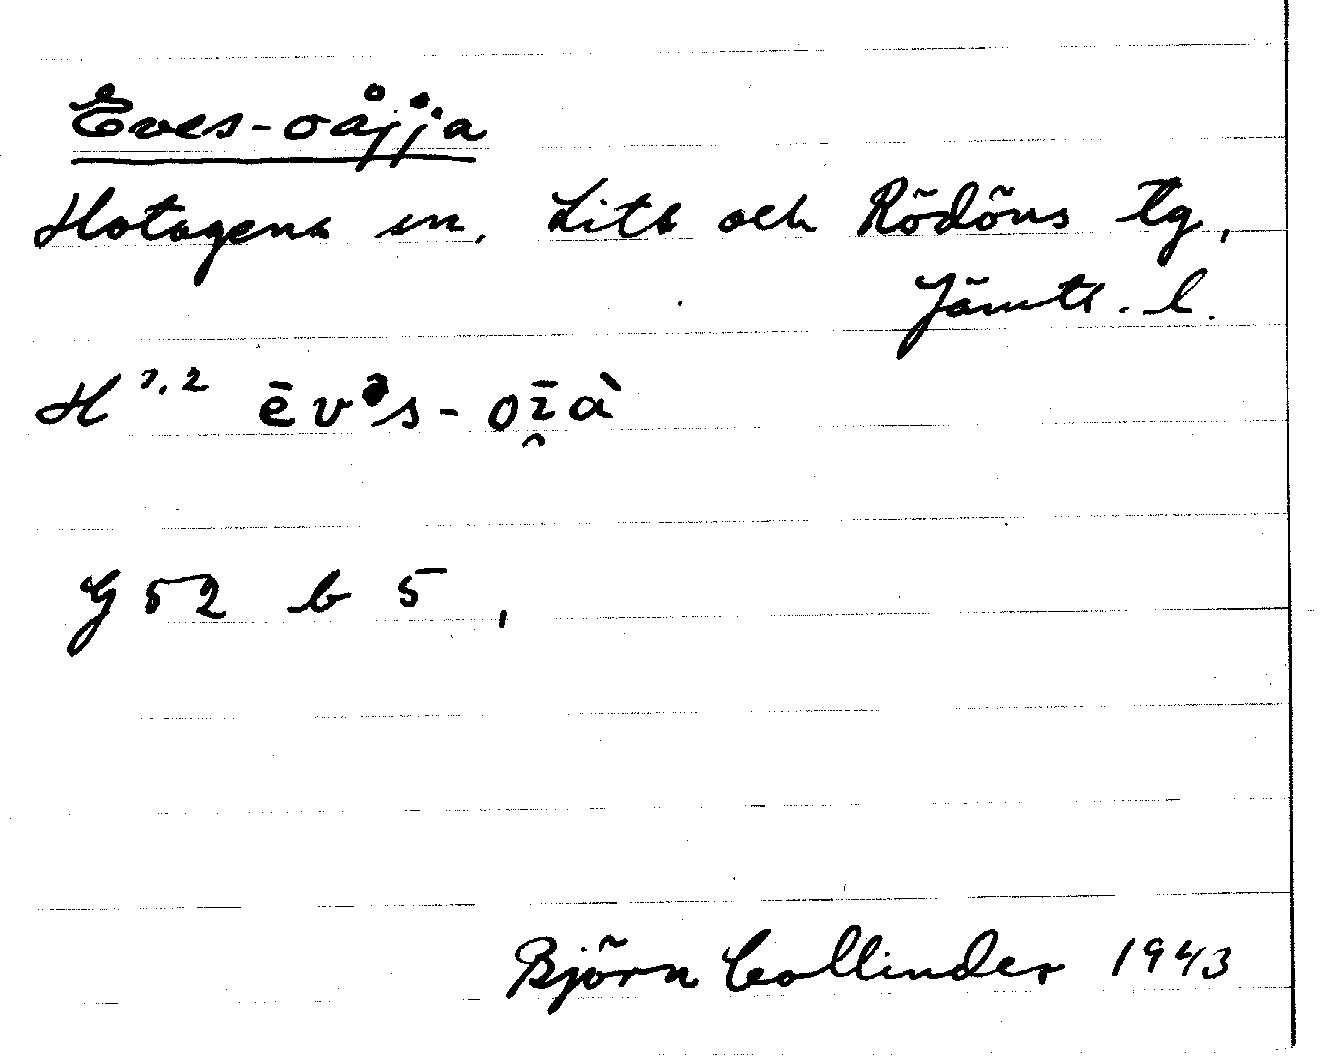 Eves-oåjja
Hotagens sn, Lits och Rödöns tg,
Jämtl. l.
H 1,2 ēvᵊs-oī̯à
G 52 b 5,
Björn Collinder 1943